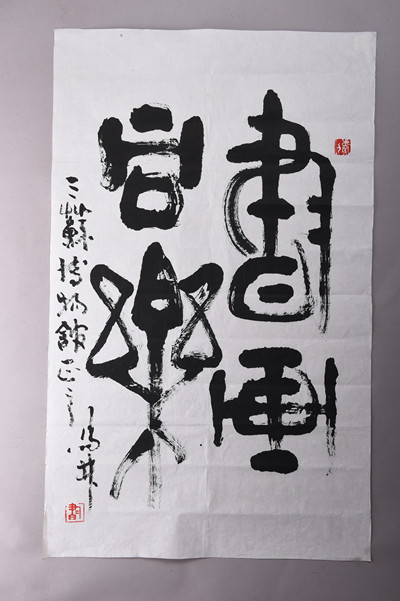 書画
同樂
三蘇博物館正之